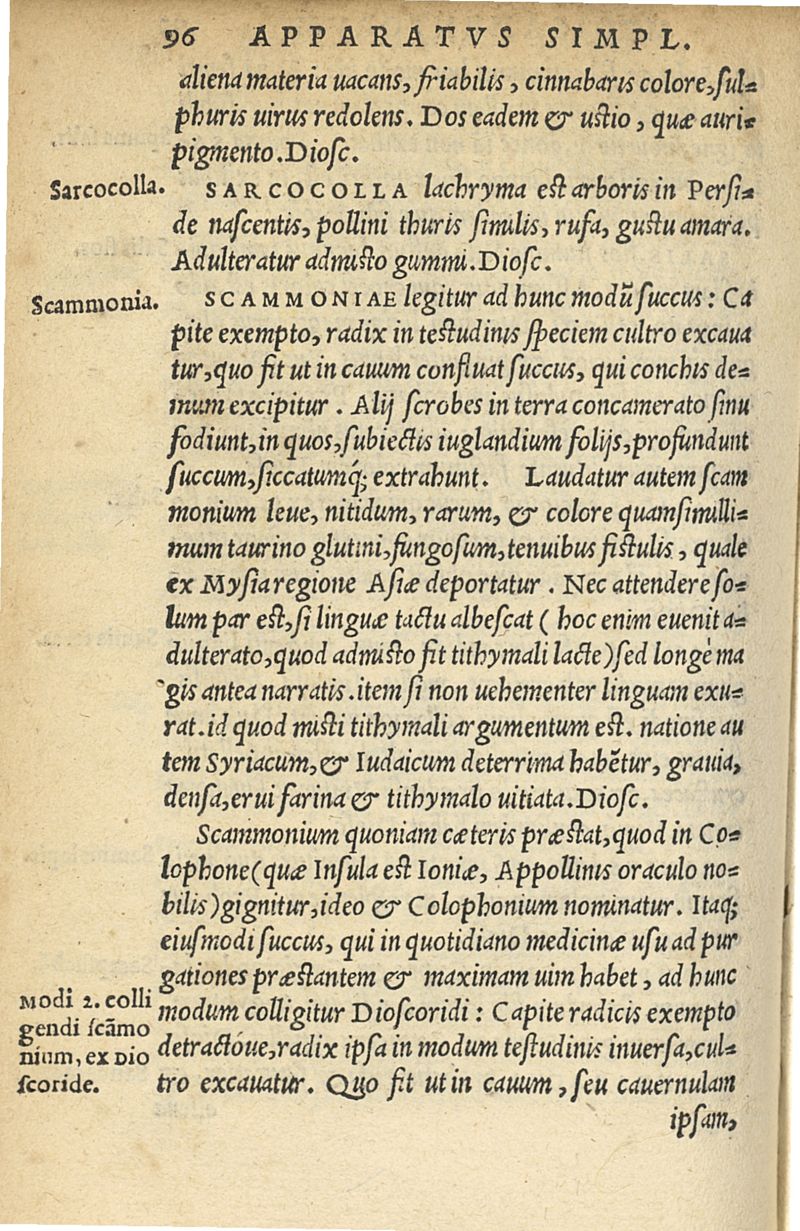 96 APPARATVS SIMPL.
aliena materia uacans, friabilis, cinnabaris colore, sul-
phuris uirus redolens. Dos eadem & ustio, quæ auri-
pigmento. Diosc.
Sarcocolla.
SARCOCOLLA lachryma est arboris in Persi-
de nascentis, pollini thuris similis, rufa, gustu amara.
Adulteratur admisto gummi. Diosc.
Scammonia.
SCAMMONIAE legitur ad hunc modũ succus: Ca
pite exempto, radix in testudinis speciem cultro excaua
tur, quo fit ut in cauum confluat succus, qui conchis de-
mum excipitur. Alij scrobes in terra concamerato sinu
fodiunt, in quos, subiectis iuglandium folijs, profundunt
succum, siccatumq́; extrahunt. Laudatur autem scam
monium leue, nitidum, rarum, & colore quamsimilli-
mum taurino glutini, fungosum, tenuibus fistulis, quale
ex Mysia regione Asiæ deportatur. Nec attendere so-
lum par est, si linguæ tactu albescat (hoc enim euenit a-
dulterato, quod admisto fit tithymali lacte) sed longè ma
gis antea narratis. item si non uehementer linguam exu-
rat. id quod misti tithymali argumentum est. natione au
tem Syriacum, & Iudaicum deterrima habẽtur, grauia,
densa, erui farina & tithymalo uitiata. Diosc.
Scammonium quoniam cæteris præstat, quod in Co-
lophone (quæ Insula est Ioniæ, Appollinis oraculo no-
bilis) gignitur, ideo & Colophonium nominatur. Itaq;
eiusmodi succus, qui in quotidiano medicinæ usu ad pur
gationes præstantem & maximam uim habet, ad hunc
Modi 2. colli
gendi scãmo
nium, ex Dio
scoride.
modum colligitur Dioscoridi: Capite radicis exempto
detractóue, radix ipsa in modum testudinis inuersa, cul-
tro excauatur. Quo fit ut in cauum, seu cauernulam
ipsam,